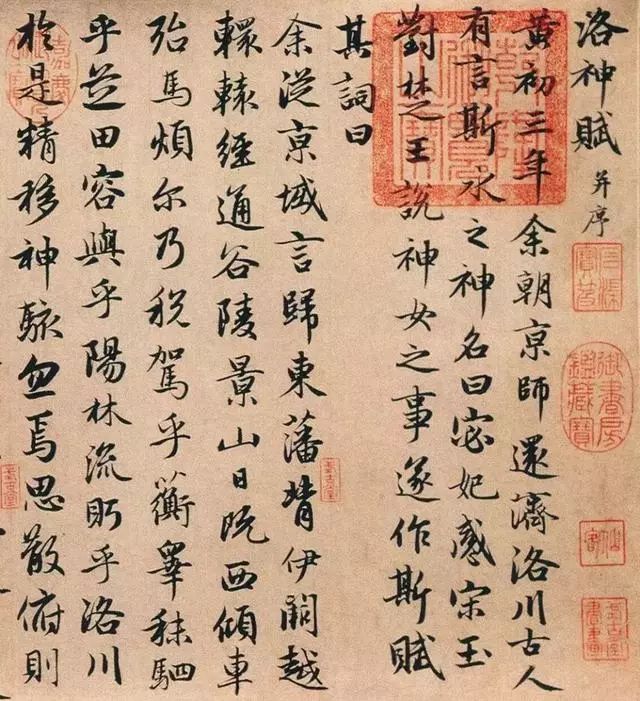 洛神賦 并序
黃初三年余朝京師還濟洛川古人
有言斯水之神名曰宓妃感宋玉
對楚王說神女之事遂作斯賦
其詞曰
余從京域言歸東藩背伊闕越
轘轅經通谷陵景山日既西傾車
殆馬煩尔乃稅駕乎蘅皋秣駟
乎芝田容與乎陽林流眄乎洛川
於是精移神駭忽焉思散俯則
御書房鑑藏寶